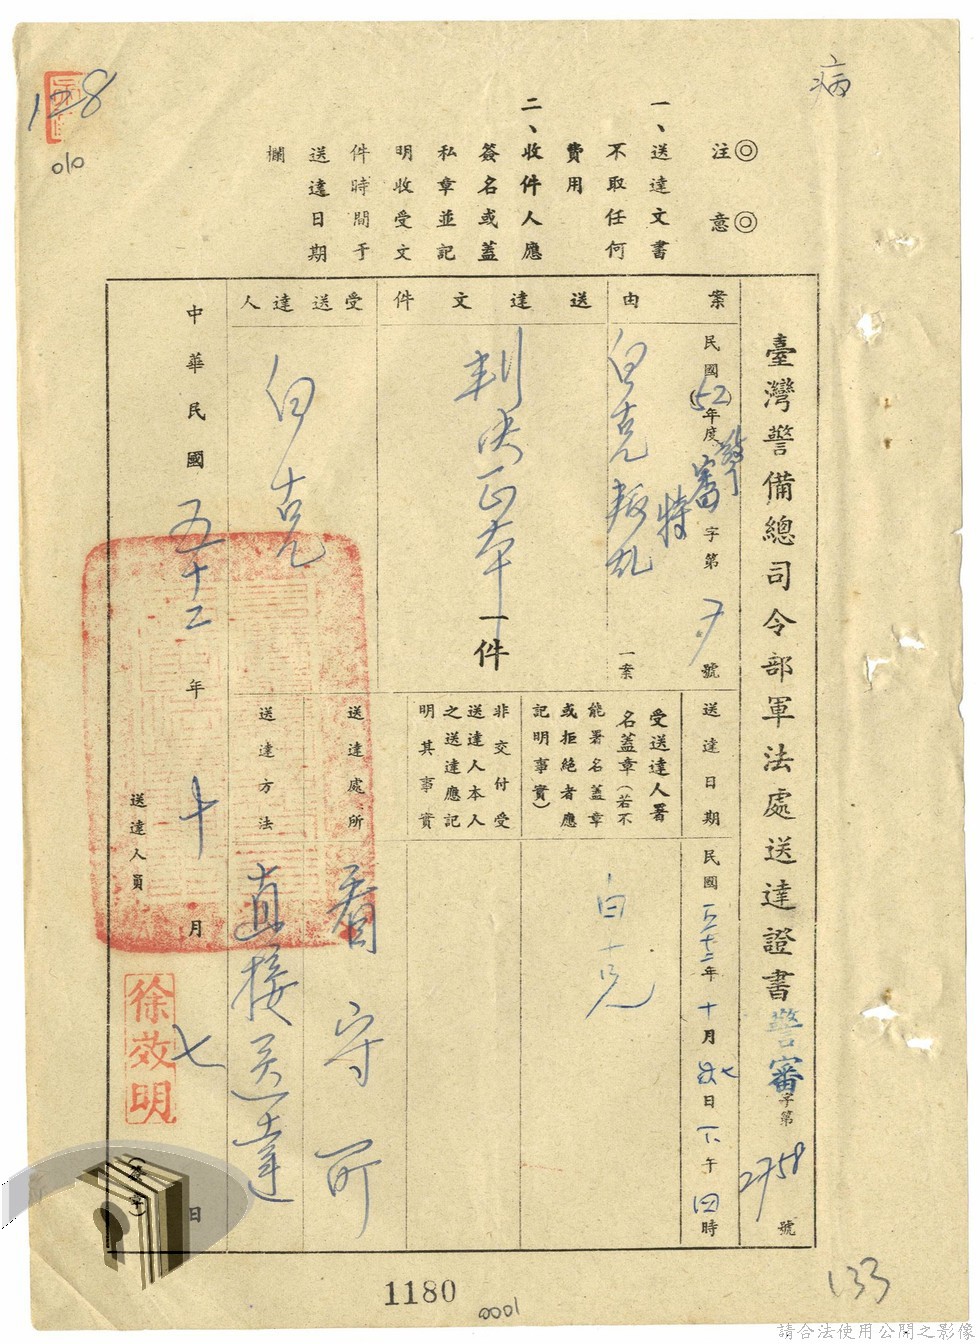 病
128
010
◎注意◎
一、送達文書
不取任何
費用
二、收件人應
簽名或蓋
私章並記
明收受文
件時間于
送達日期
欄
臺灣警備總司令部軍法處送達證書警審字第2758號
案由
民國(52)年度警審特字第号號
白克叛乱一案
送達文件
判決正本一件
受送達人
白克
送達日期
民國五十二年十月七日下午四時
受送達人署
名蓋章(若不
能署名蓋章
或拒絕者應
記明事實)
白克
非交付受
送達人本人
之送達應記
明其事實
送達處所
看守所
送達方法
直接送達
中華民國五十二年十月七日
送達人員
徐效明
(蓋章)
1180
0001
133
請合法使用公開之影像